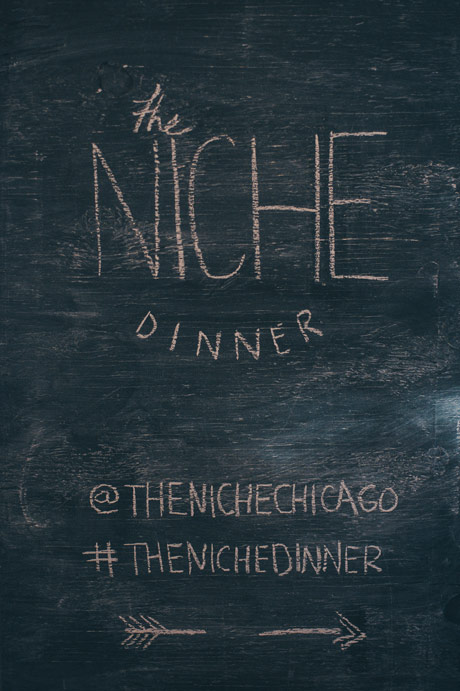 the
NICHE
DINNER
@THENICHECHICAGO
#THENICHEDINNER